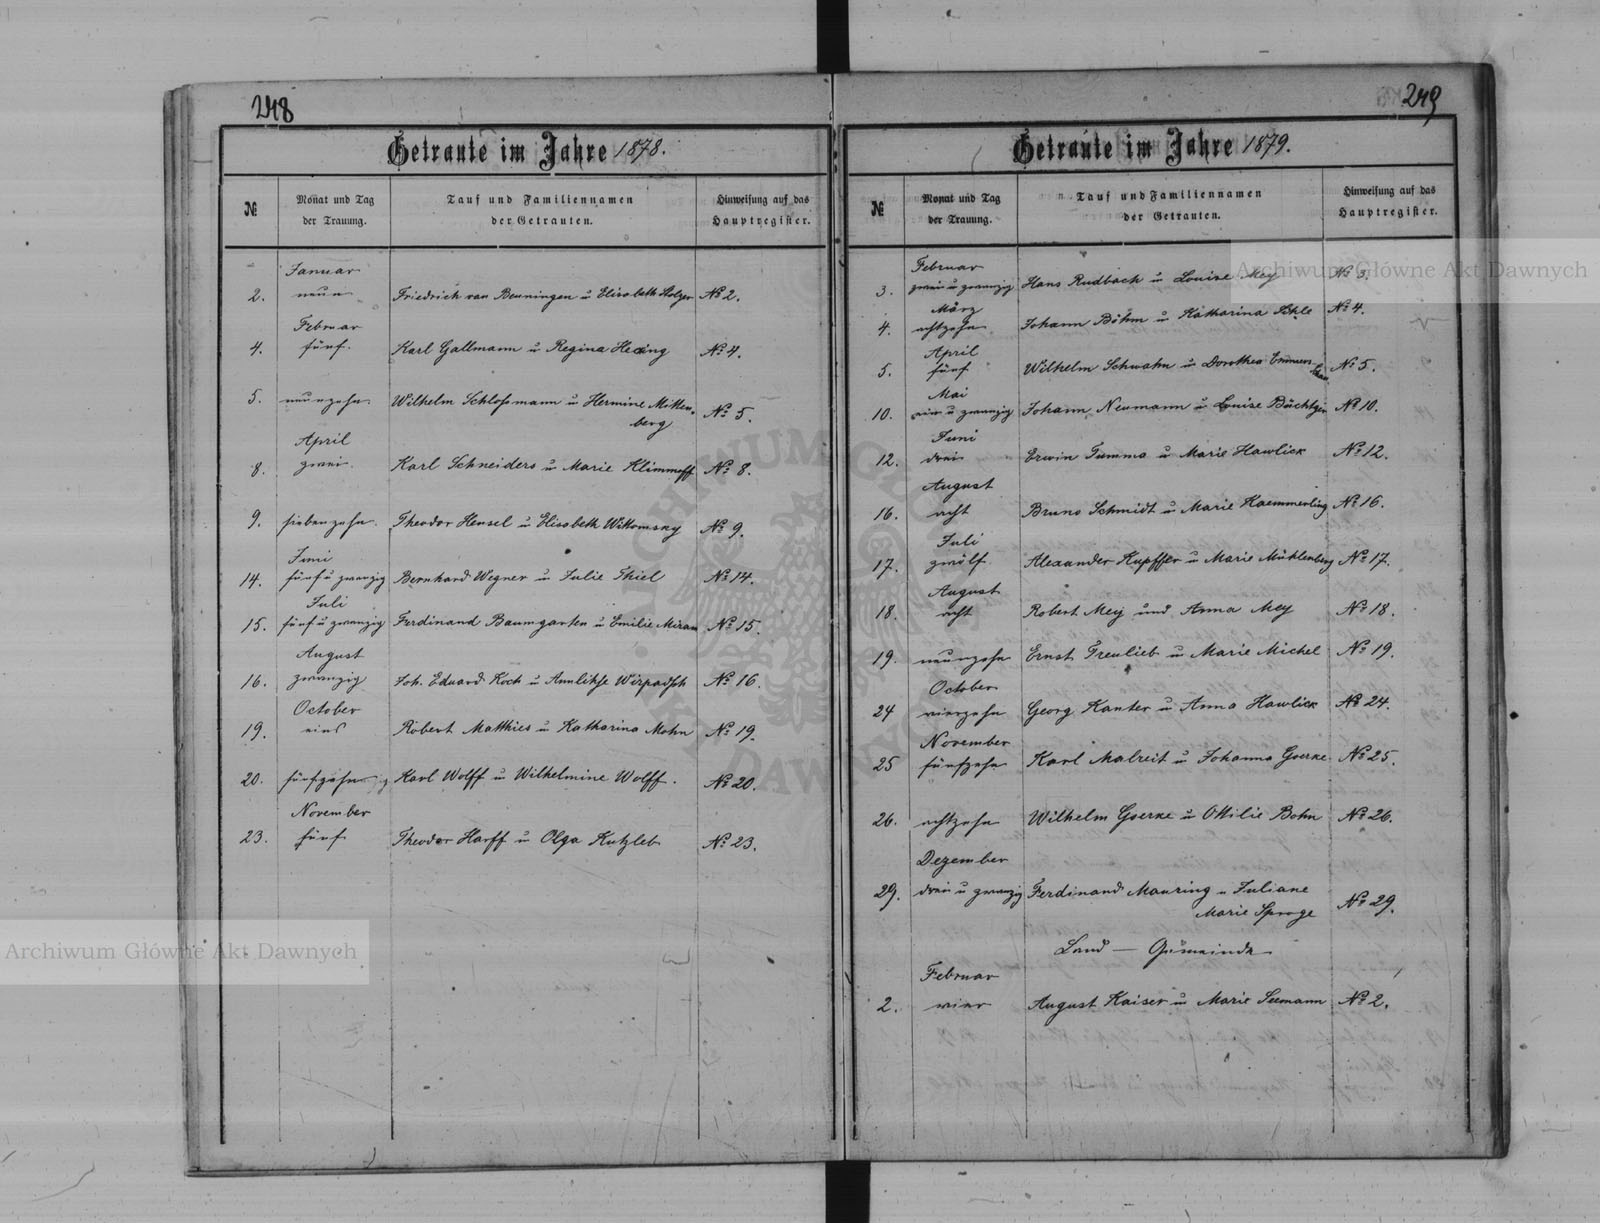 248
Getraute im Jahre 1878.
№ Monat und Tag der Trauung. Tauf und Familiennamen der Getrauten. Hinweisung auf das Hauptregister.
Januar
2. neun Friedrich van Beuningen u Elisabeth Stolzer № 2.
Februar
4. fünf. Karl Gallmann u Regina № 4.
5. neunzehn. Wilhelm Schloßmann u Hermine Mitten-
berg № 5.
April
8. zwei. Karl Schneiders u Marie Klimmoff № 8.
9. siebenzehn. Theodor Hensel u Elisabeth Witkowsky № 9.
Juni
14. fünf u zwanzig Bernhard Wegner u Julie Thiel № 14.
Juli
15. fünf u zwanzig Ferdinand Baumgarten u Emilie № 15.
August
16. zwanzig Joh. Eduard Koch u № 16.
October
19. eins Robert Matthies u Katharina Mohn № 19.
20. fünfzehn Karl Wolff u Wilhelmine Wolff. № 20.
November
23. fünf Theodor Harff u Olga Kutzleb № 23.
249
Getraute im Jahre 1879.
№ Monat und Tag der Trauung. Tauf und Familiennamen der Getrauten. Hinweisung auf das Hauptregister.
Februar
3. zwei u zwanzig Hans Rudbach u Louise Mey № 3.
März
4. achtzehn Johann Böhm u Katharina № 4.
April
5. fünf Wilhelm Schwahn u Dorothea № 5.
Mai
10. ein u zwanzig Johann Neumann u Louise Büchtger № 10.
Juni
12. drei Erwin Tumma u Marie Hawlick № 12.
August
16. acht Bruno Schmidt u Marie Kaemmerling № 16.
Juli
17. zwölf Alexander Kupffer u Marie Mühlenberg № 17.
August
18. acht Robert Mey und Anna Mey № 18.
19. neunzehn Ernst Treulieb u Marie Michel № 19.
October
24 vierzehn Georg Kanter u Anna Hawlick № 24.
November
25 fünfzehn Karl Malreit u Johanna Goerke № 25.
26. achtzehn Wilhelm Goerke u Ottilie Bohn № 26.
Dezember
29. drei u zwanzig Ferdinand Mauring u Juliane
Marie Sproge № 29.
Land — Gemeinde
Februar
2. vier August Kaiser u Marie Seemann № 2.
Archiwum Główne Akt Dawnych
Archiwum Główne Akt Dawnych
ARCHIWUM GŁÓWNE AKT DAWNYCH